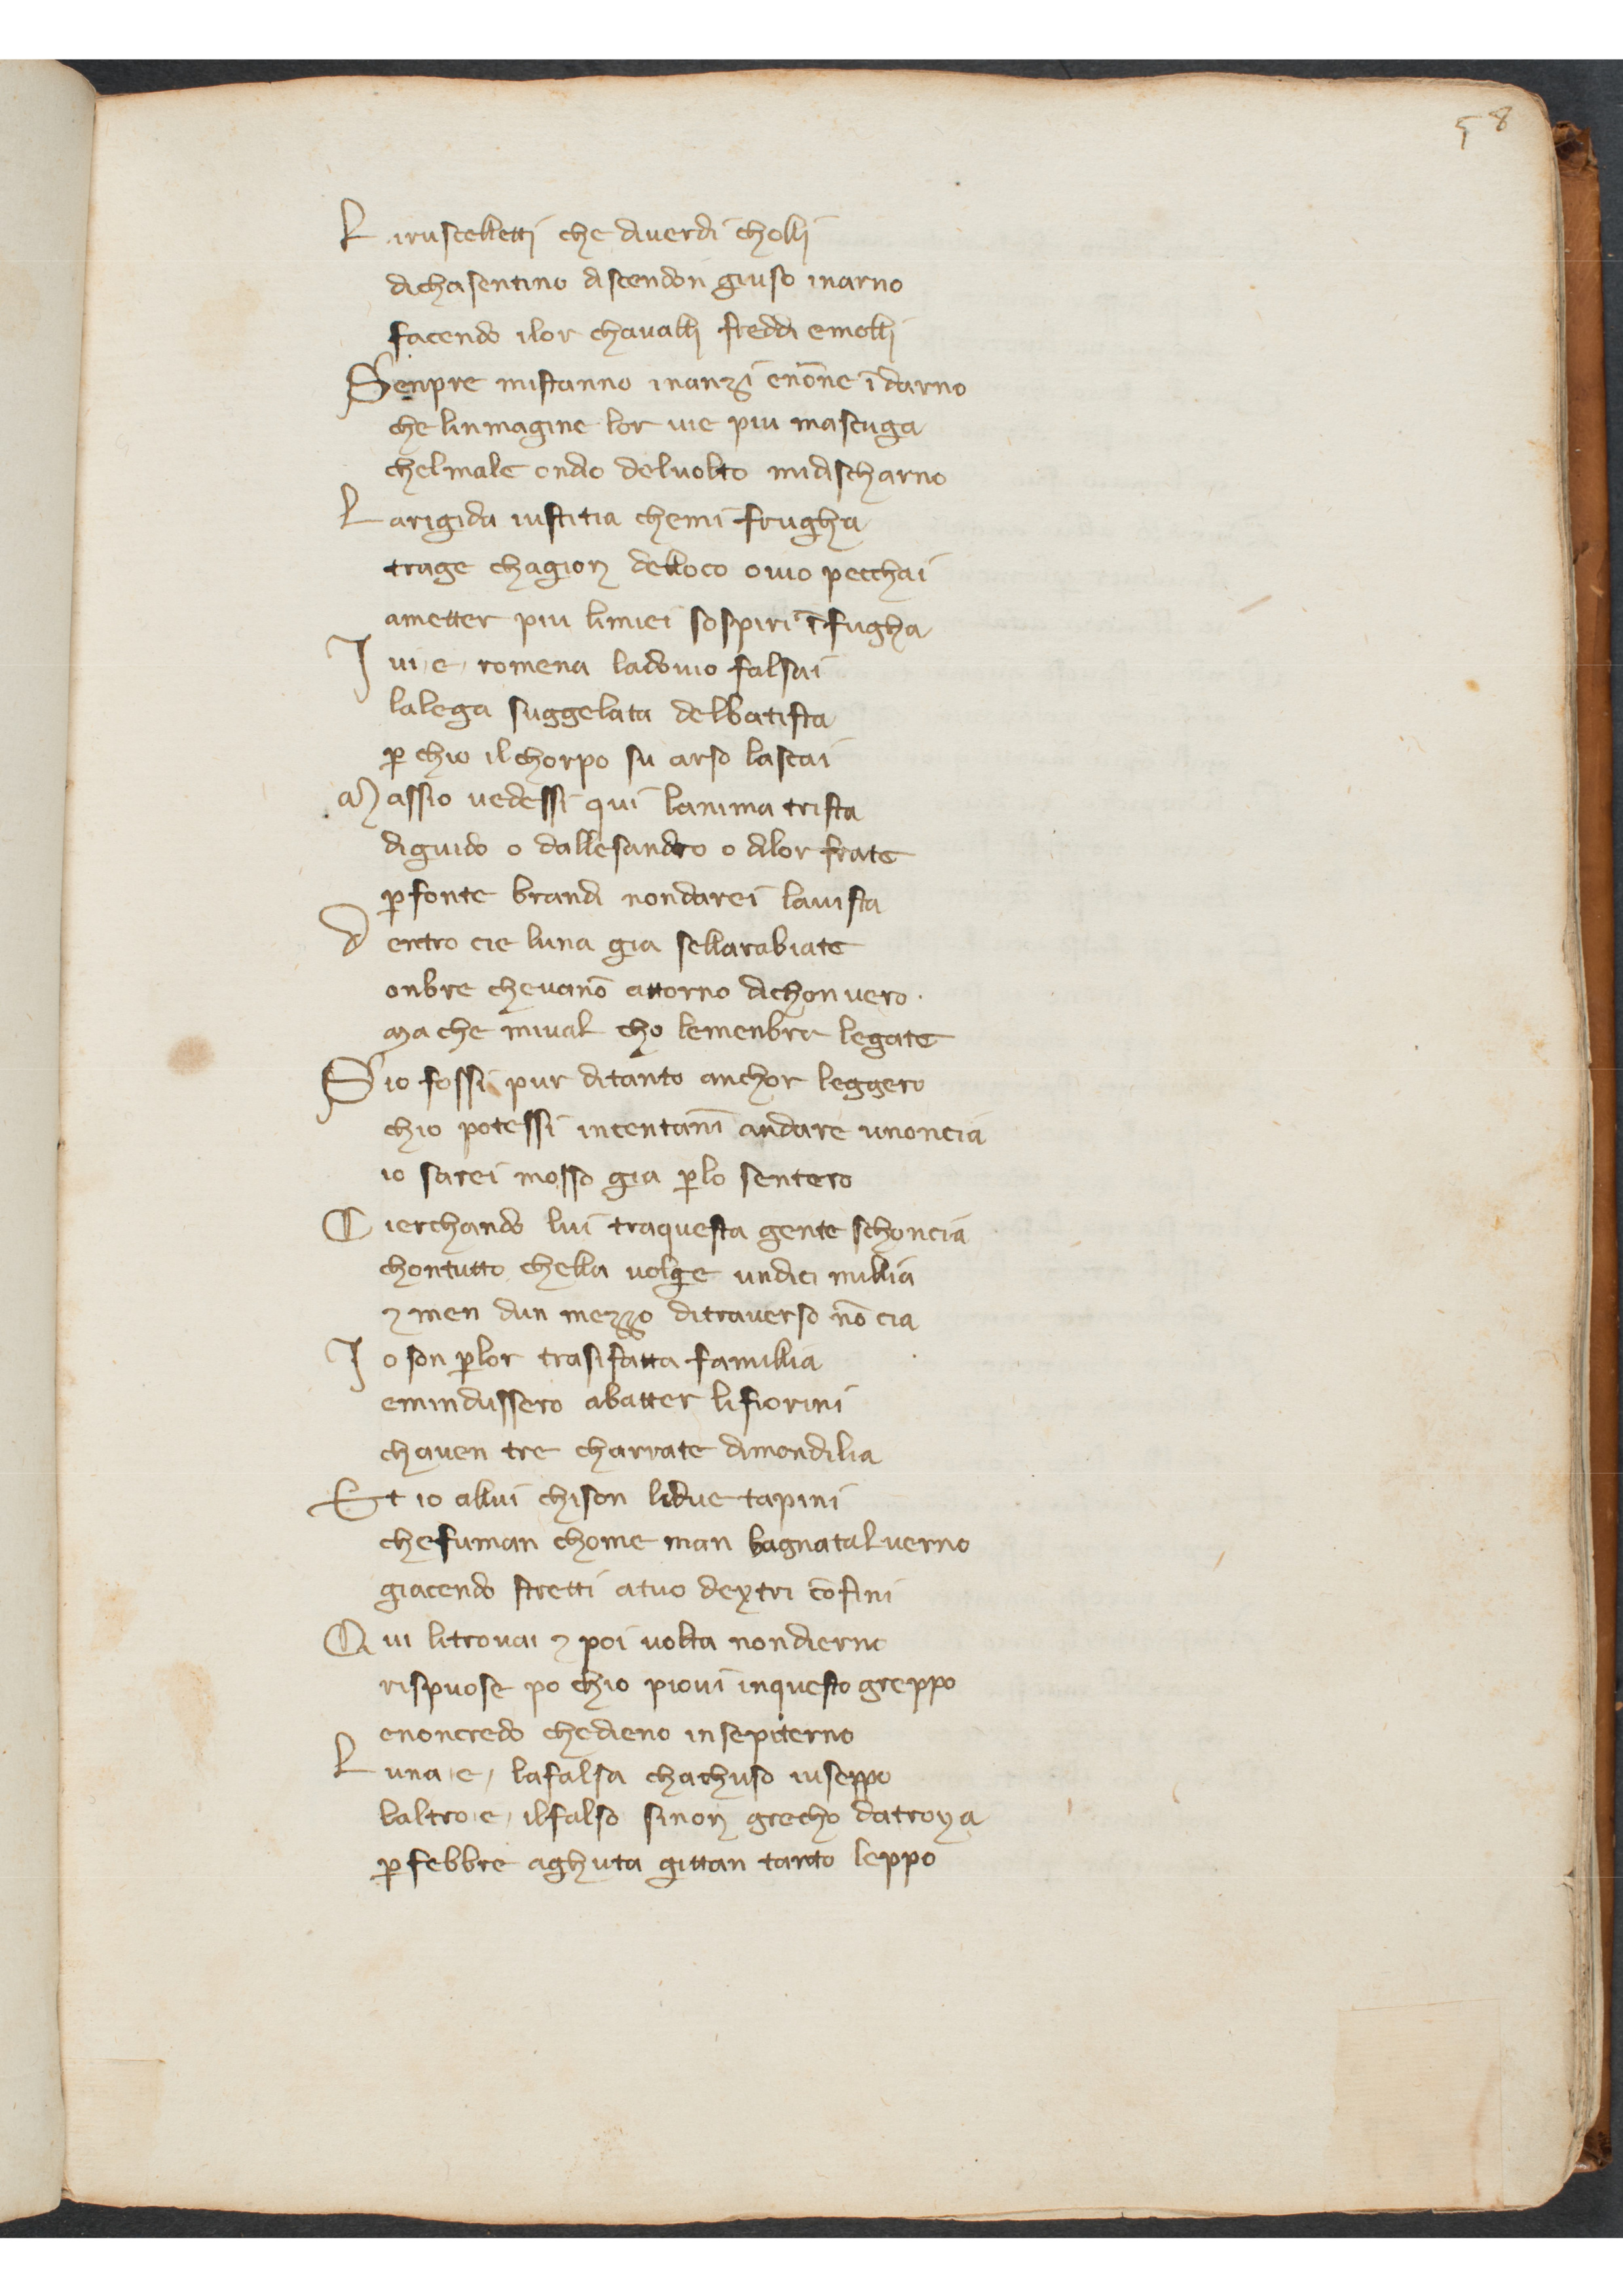 58
L iruscelletti che diverdi cholli
dichasentino discendon giuso inarno
facendo ilor chavalli freddi emolli
Senpre mistanno inanzi enōne īdarno
che linmagine lor vie piu masciuga
chelmale ondio delvolto midischarno
L arigida iustitia chemi frugha
trage chagion delloco ovio pecchai
ametter piu limiei sospiri īfugha
I vi e romena ladovio falsai
lalega suggelata delbatista
ꝑ chio ilchorpo su arso lasciai
M assio vedessi qui lanima trista
diguido o dallesandro o dilor frate
ꝑfonte brandi nondarei lavista
d entro cie luna gia sellarabiate
onbre chevanō attorno dichonvero
ma che mival cho lemenbra legate
S io fossi pur ditanto anchor leggero
chio potessi incentanī andare unoncia
io sarei mosso gia ꝑlo sentero
C ierchando lui traquesta gente schoncia
chontutto chella volge undici millia
⁊ men dun mezzo ditraverso nō cia
I o son ꝑlor trasifatta famillia
emindussero abatter lifiorini
chaven tre charrate dimondilia
Et io allui chison lidue tapini
chefuman chome man bagnatalverno
giacendo stretti atuo dextri cōfini
Q ui litrovai ⁊ poi volta nondierno
rispuose po chio piovi inquesto greppo
enoncredo chedieno insepiterno
L una e lafalsa chachuso iuseppo
laltro e ilfalso sinon grecho datroya
ꝑfebbre aghuta gittan tanto leppo